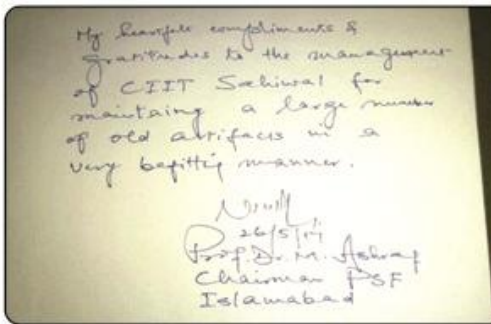 My heartfelt compliments &
gratitudes to the management
of CIIT Sahiwal for
maintaing a large number
of old artifacts in a
very befittig manner.
26/5/14
Prof. Dr. M. Ashraf
Chairman PSF
Islamabad